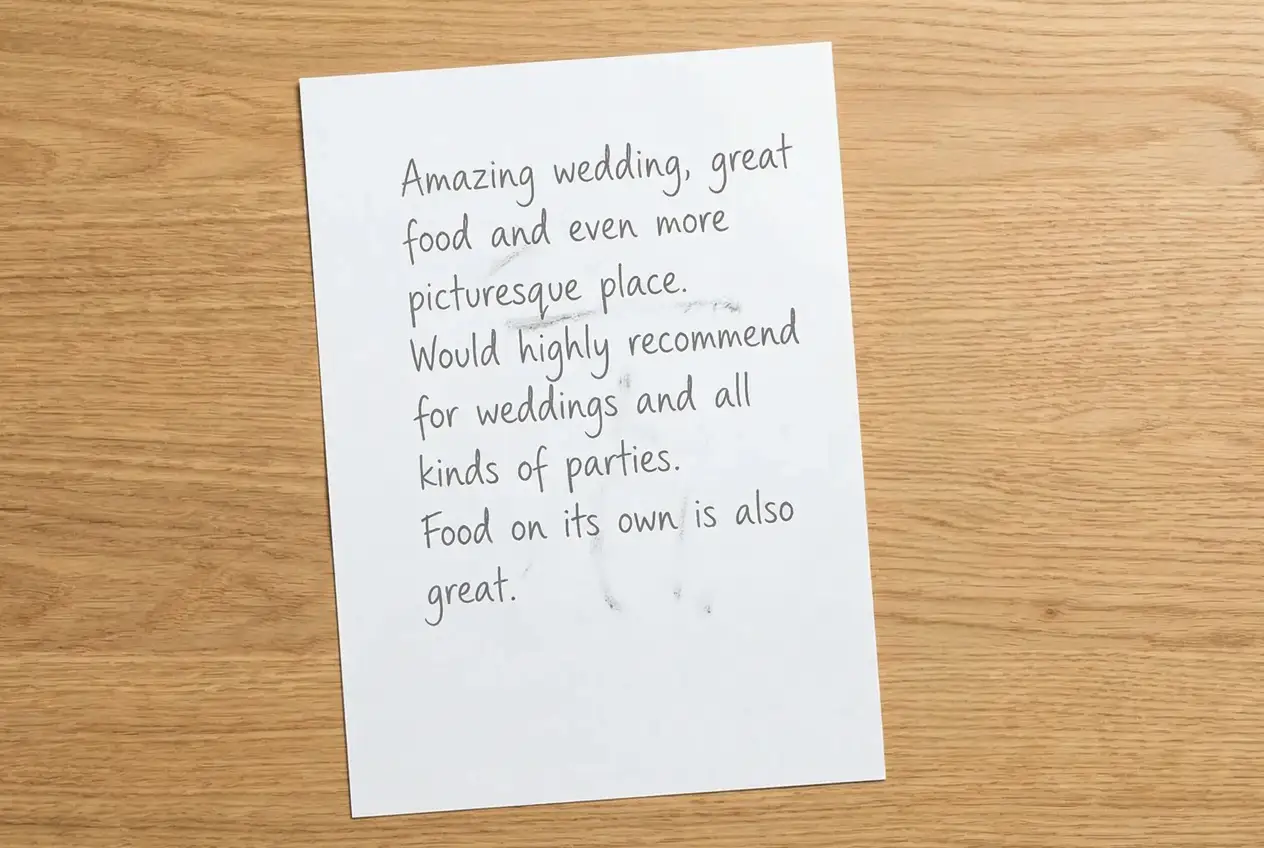 Amazing wedding, great
food and even more
picturesque place.
Would highly recommend
for weddings and all
kinds of parties.
Food on its own is also
great.